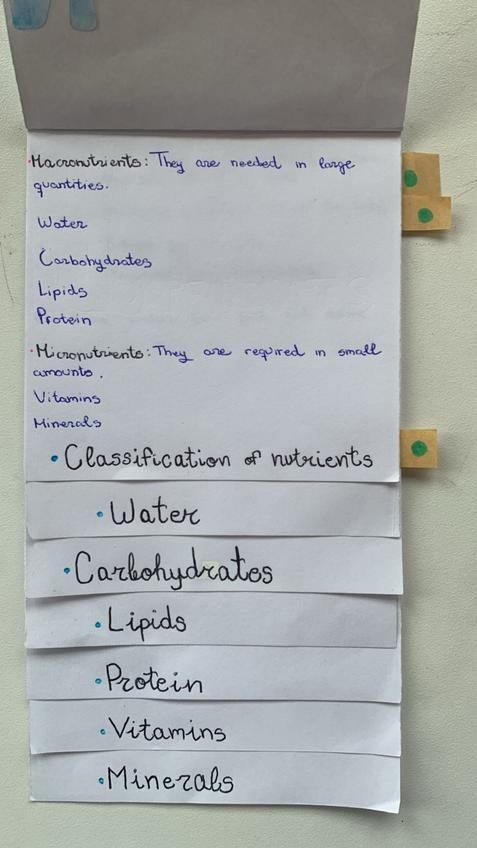 ·Macronutrients: They are needed in large
quantities.
Water
Carbohydrates
Lipids
Protein
·Micronutrients: They are required in small
amounts.
Vitamins
Minerals
·Classification of nutrients
·Water
·Carbohydrates
·Lipids
·Protein
·Vitamins
·Minerals